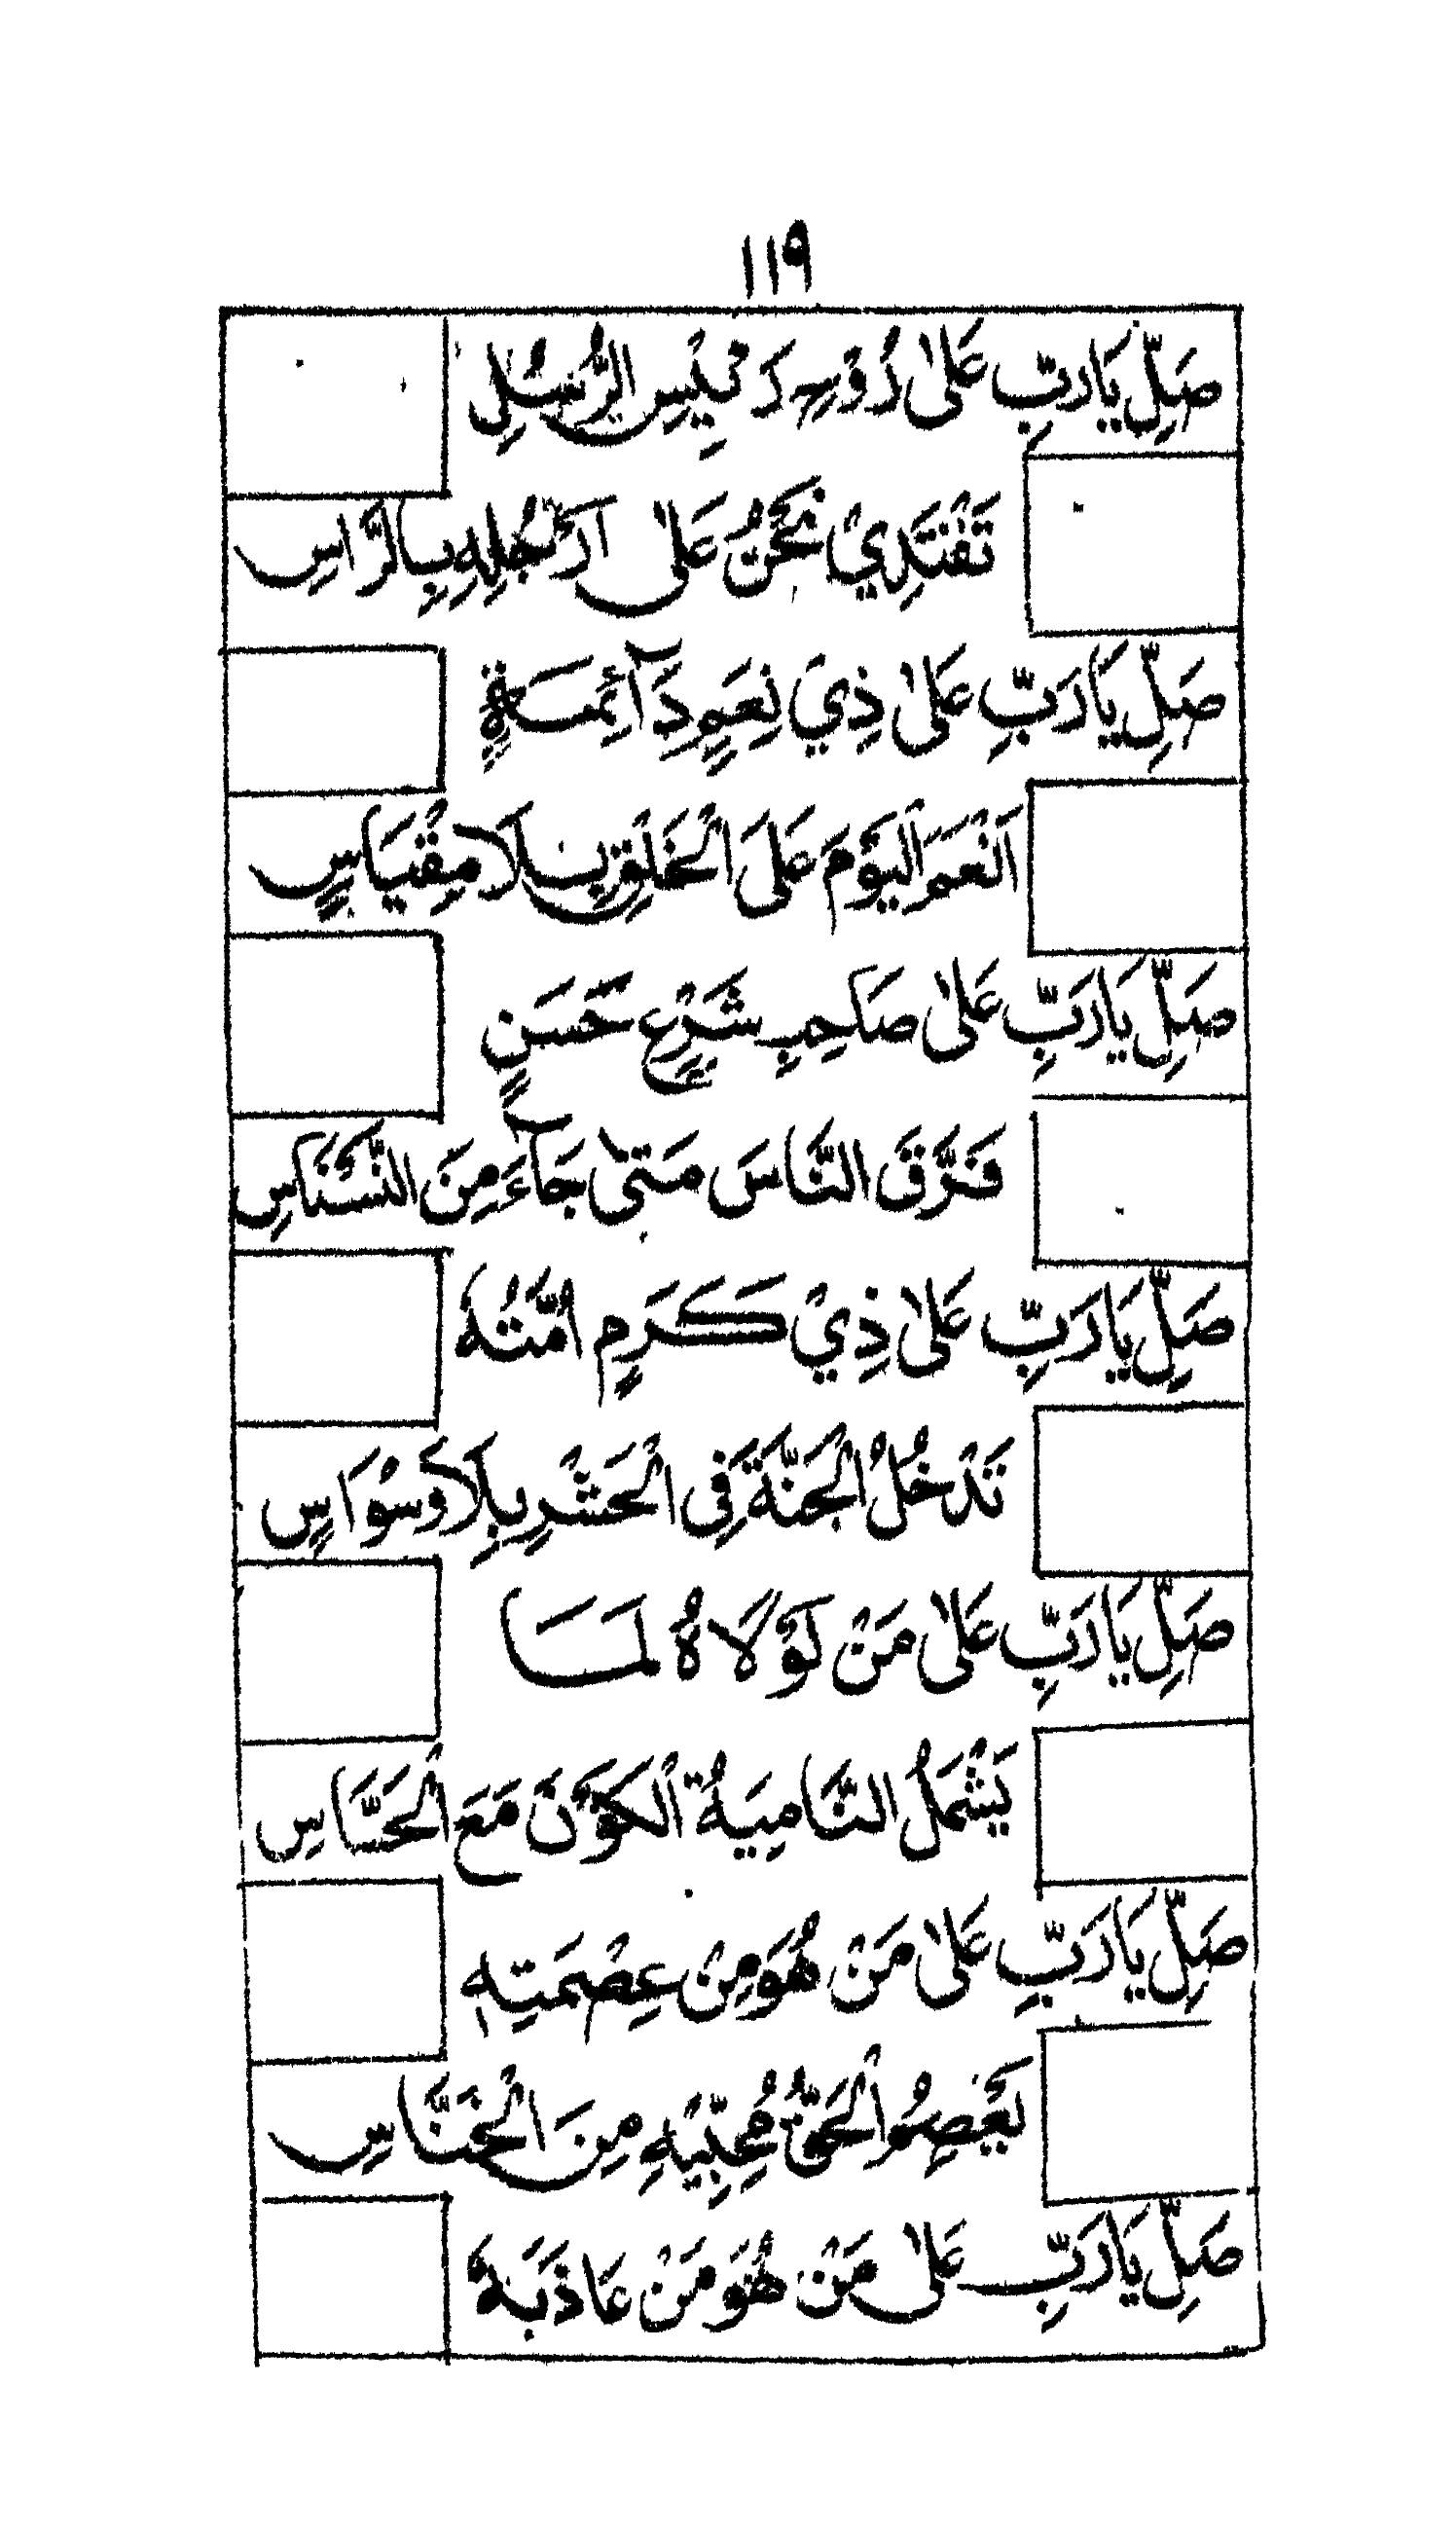 ١١٩
صَلِّ يَا رَبِّ عَلٰى رُوْحِ رَئِيْسِ الرُّسُلِ
تَفْتَدِيْ نَحْنُ عَلٰى اَرْجُلِهِ بِالرَّاسِ
صَلِّ يَا رَبِّ عَلٰى ذِيْ نِعَمٍ دَآئِمَةٍ
اَنْعَمَ الْيَوْمَ عَلَى الْخَلْقِ بِلَا مِقْيَاسٍ
صَلِّ يَا رَبِّ عَلٰى صَاحِبِ شَرْعٍ حَسَنٍ
فَرَّقَ النَّاسَ مَتٰى جَآءَ مِنَ النَّسْنَاسِ
صَلِّ يَا رَبِّ عَلٰى ذِيْ كَرَمٍ اُمَّتُهُ
تَدْخُلُ الْجَنَّةَ فِى الْحَشْرِ بِلَا وَسْوَاسٍ
صَلِّ يَا رَبِّ عَلٰى مَنْ لَوْلَاهُ لَمَا
يَشْمَلُ النَّامِيَةُ الْكَوْنَ مَعَ الْحَسَّاسِ
صَلِّ يَا رَبِّ عَلٰى مَنْ هُوَ مِنْ عِصْمَتِهِ
يَعْصِمُ الْحَقُّ مُحِبِّيْهِ مِنَ الْخَنَّاسِ
صَلِّ يَا رَبِّ عَلٰى مَنْ هُوَ مَنْ عَاذَ بِهِ